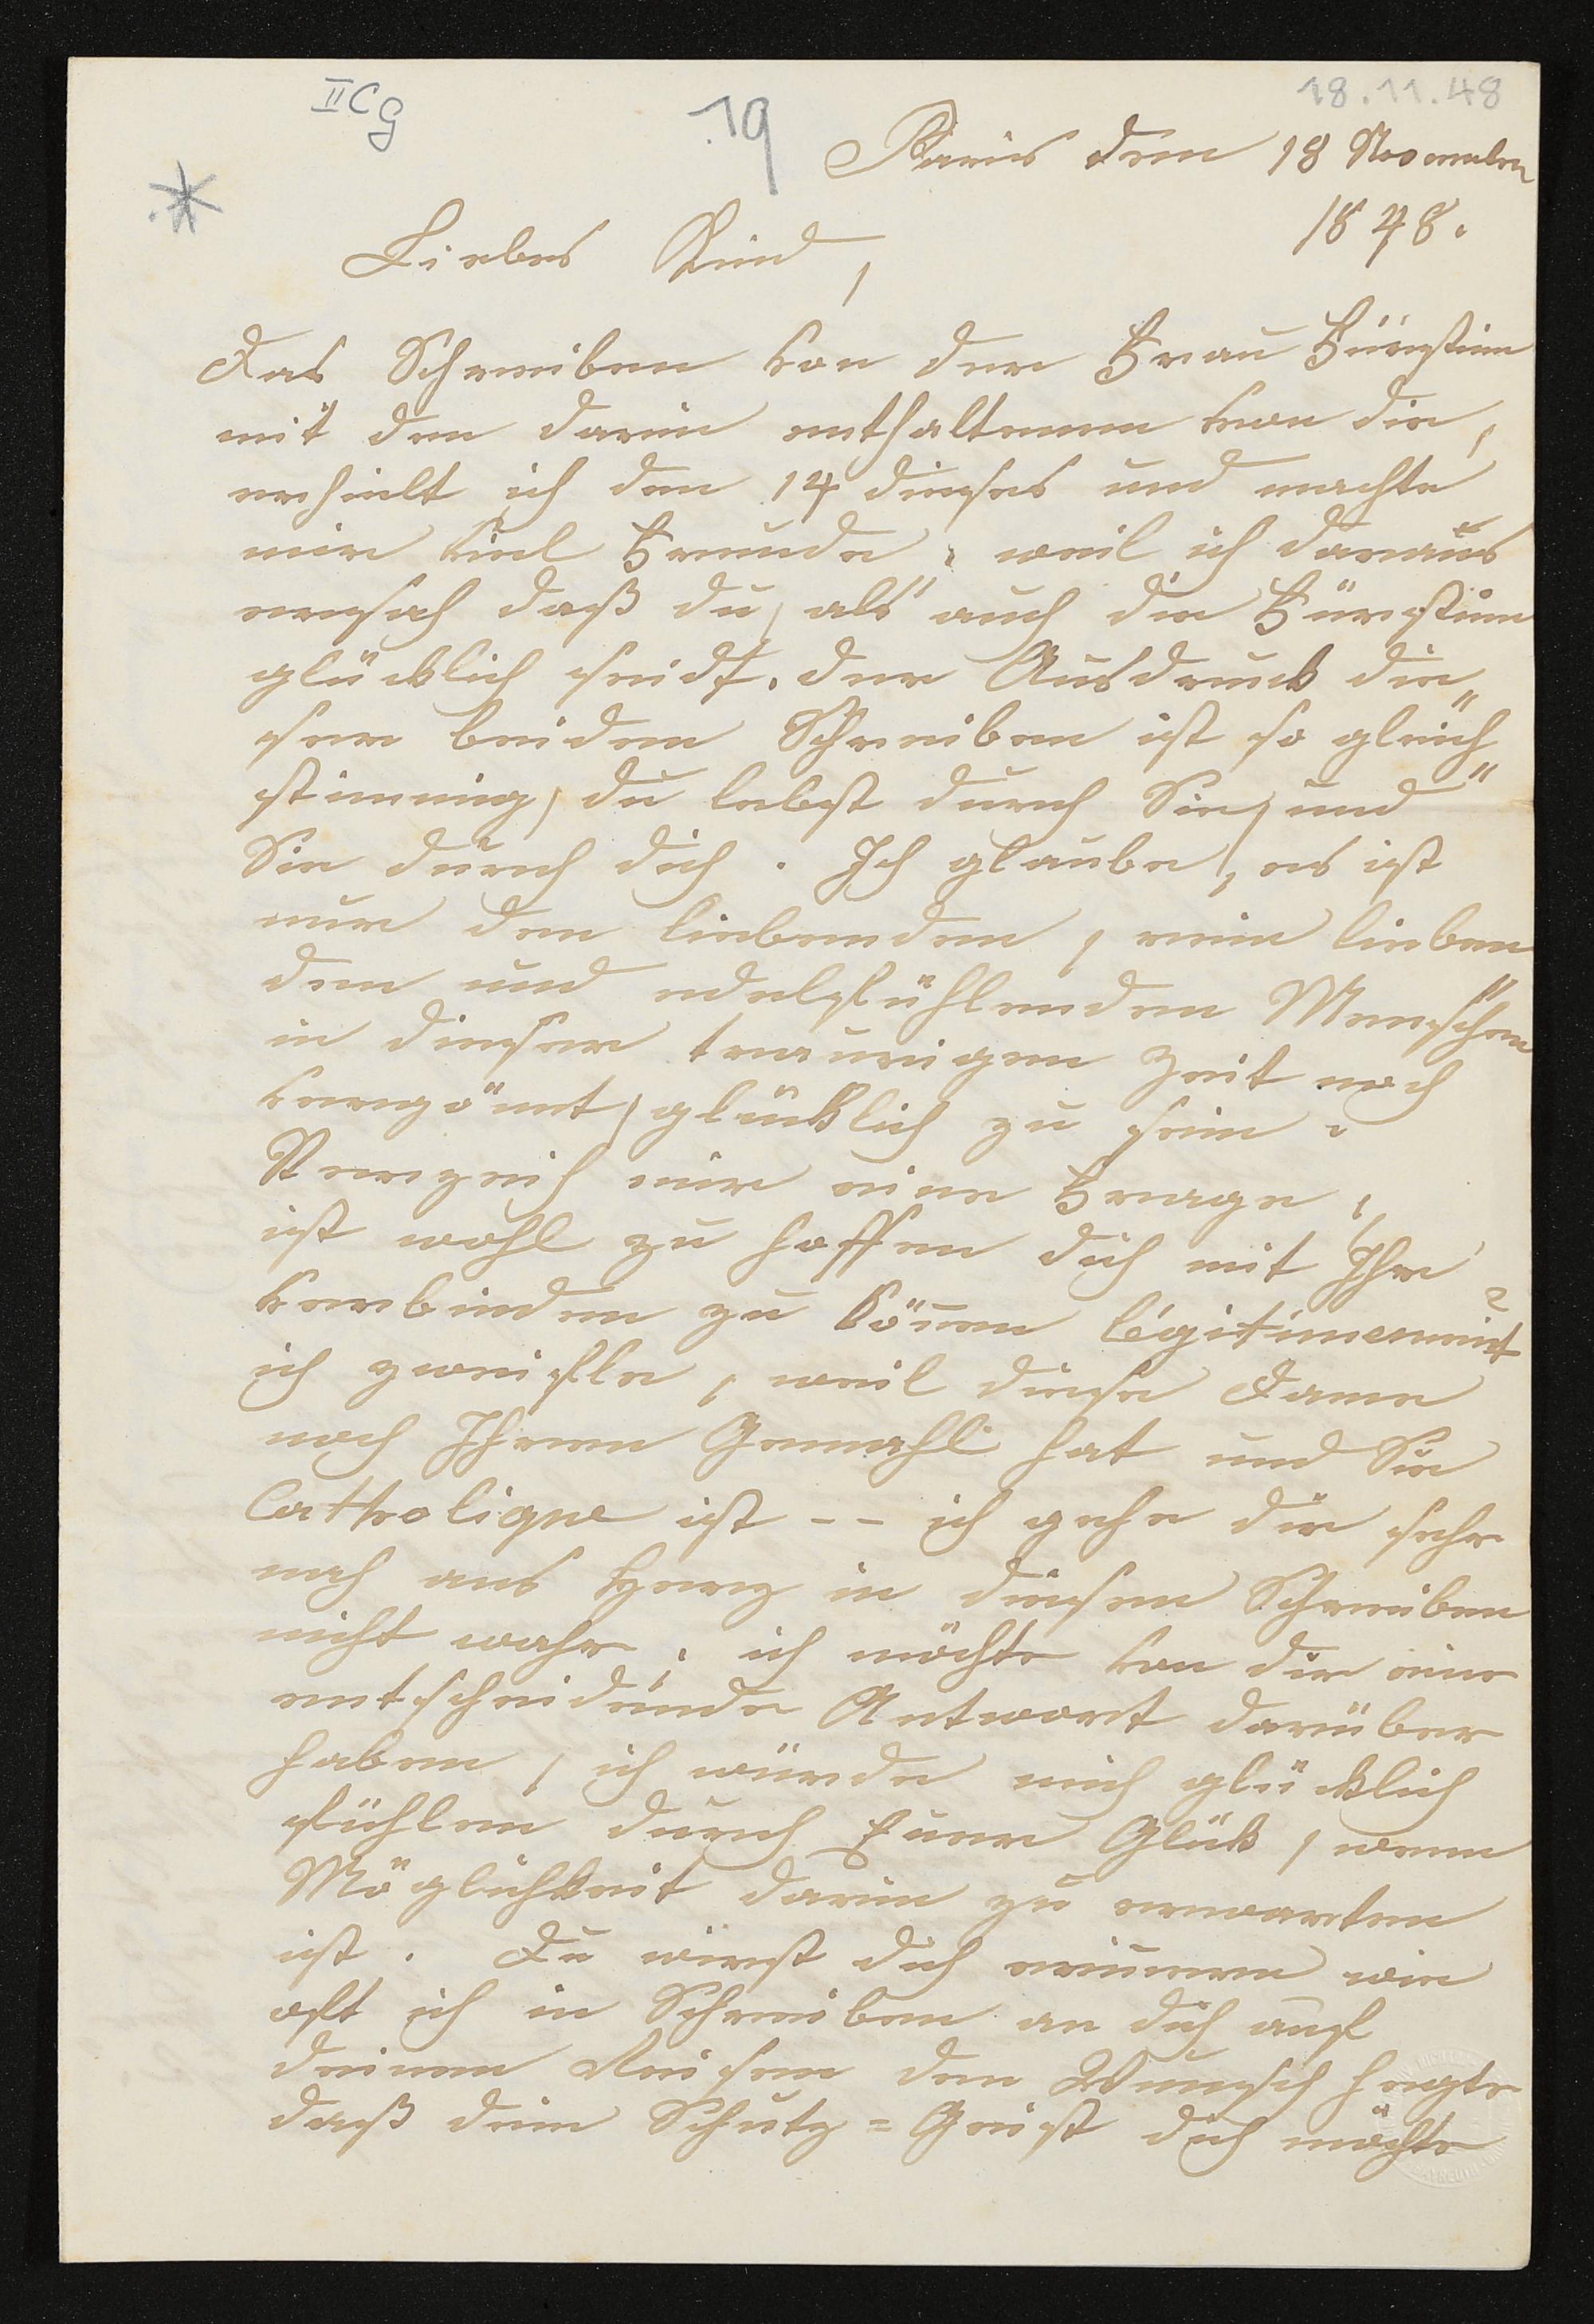 IICg
19
18.11.48
Paris den 18 November
1848.
Liebes Kind,
Das Schreiben von der Frau Fürstinn
mit den darin enthaltenem von dir,
erhielt ich den 14 dieses und machte
mir viel Freude, weil ich daraus
ersah daß du, als auch die Fürstinn
glücklich seidt. der Ausdruck die„
ser beiden Schreiben ist so gleich„
stimmig, du lebst durch Sie, und
Sie durch dich. Ich glaube, es ist
nur den liebenden, rein lieben„
den und edelfühlenden Menschen
in dieser traurigen Zeit noch
vergönnt, glücklich zu sein.
Verzeih mir eine Frage,
ist wohl zu hoffen dich mit Ihr
verbinden zu können légitimement?
ich zweifle, weil diese Dame
noch Ihren Gemahl hat und Sie
Catholique ist -- ich gehe dir sehr
nah ans Herz in diesem Schreiben
nicht wahr, ich möchte von dir eine
entscheidende Antwort darüber
haben, ich würde mich glücklich
fühlen durch Euer Glück, wenn
Möglichkeit darin zu erwarten
ist. Du wirst dich erinnern wie
oft ich in Schreiben an dich auf
deinen Reisen den Wunsch hegte
daß dein Schutz=Geist dich möchte